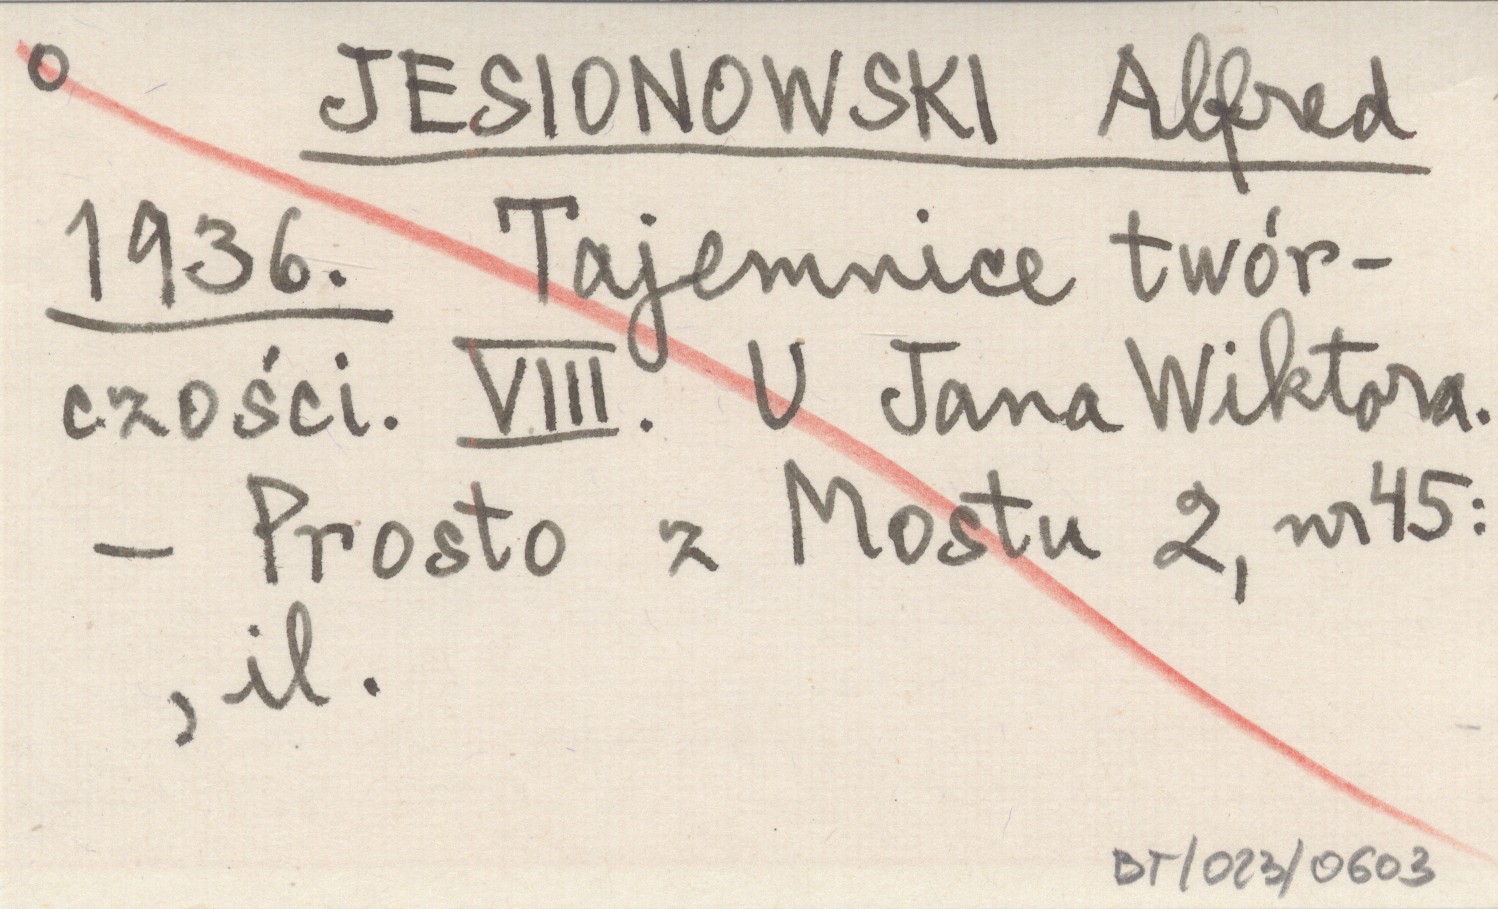 o JESIONOWSKI Alfred
1936. Tajemnice twór-
czości. VIII. U Jana Wiktora.
— Prosto z Mostu 2, nr 45:
, il.
BT/023/0603